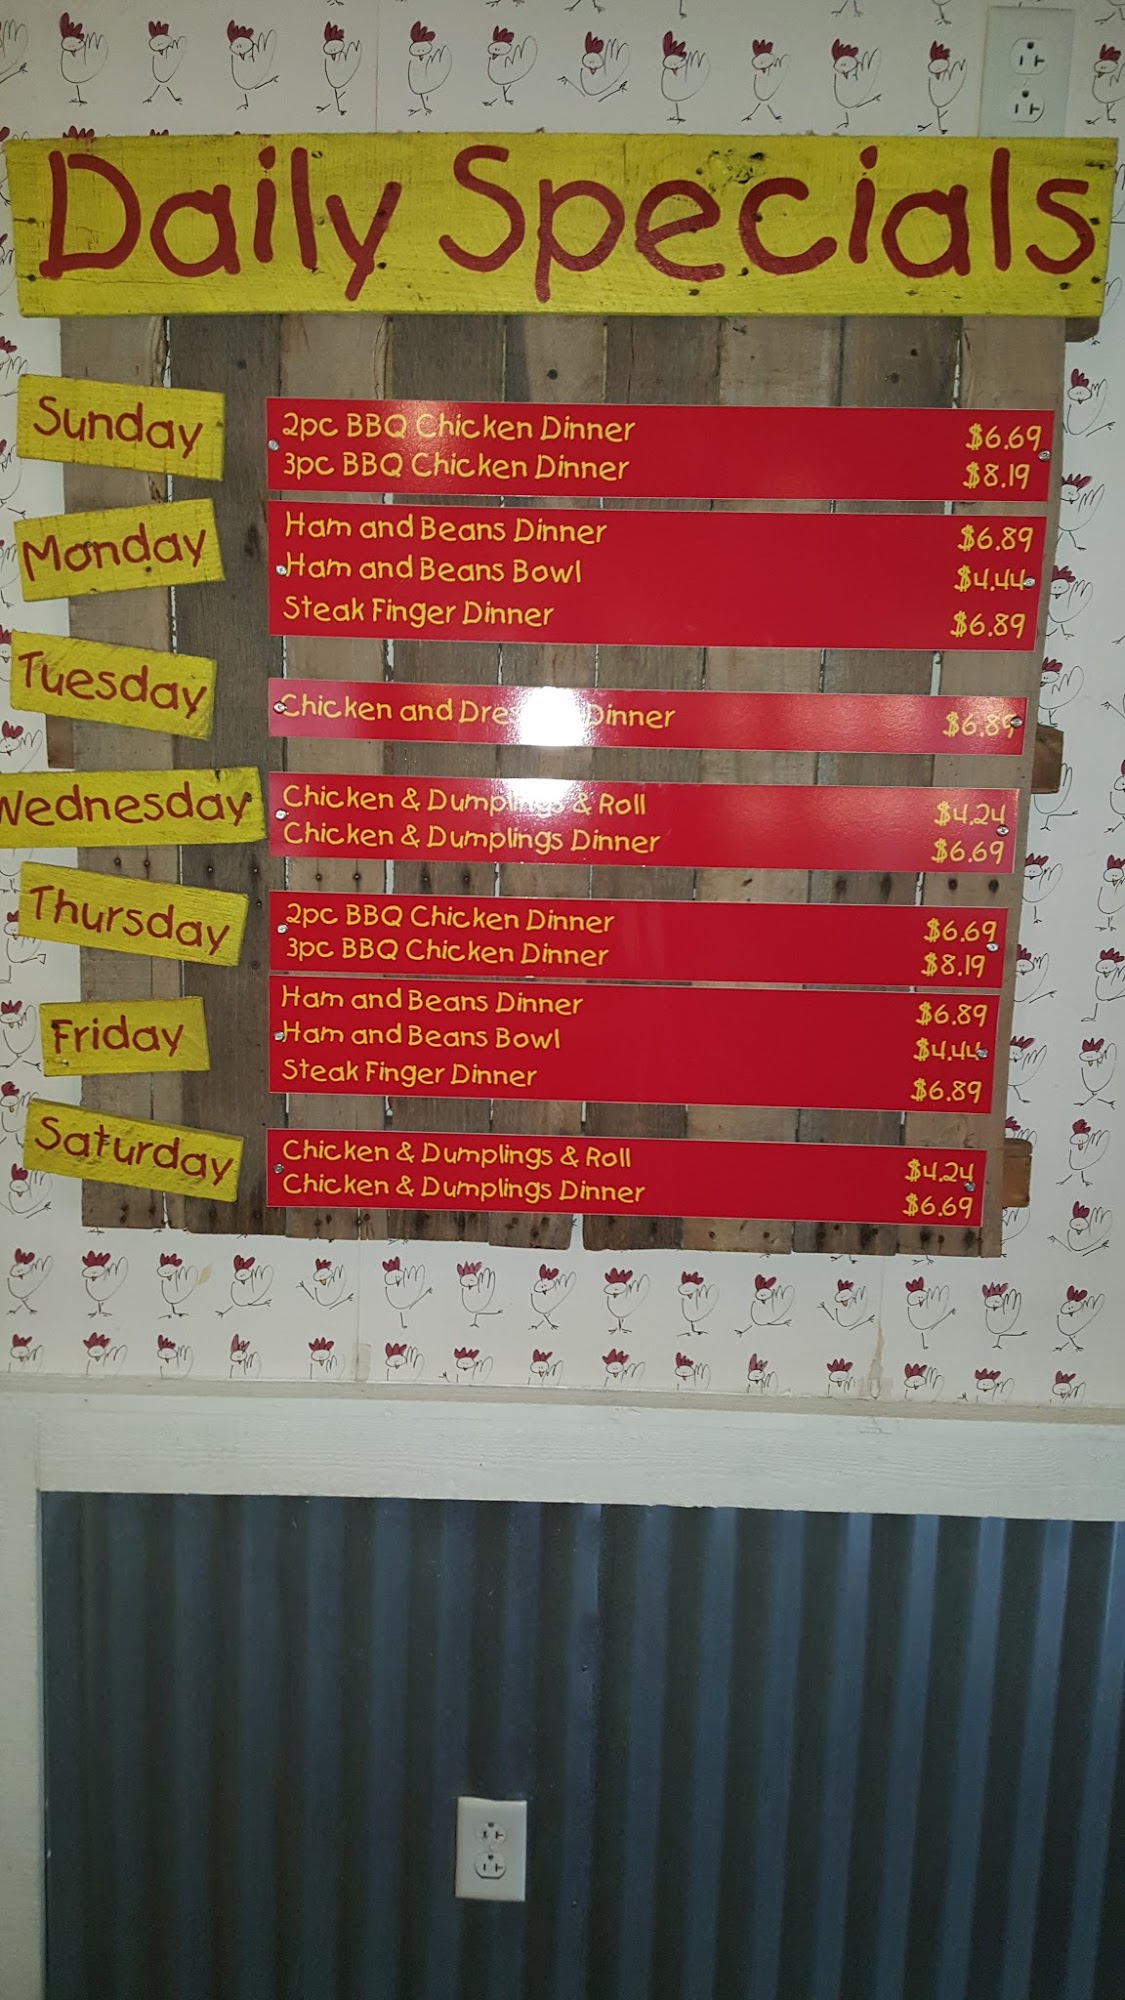 Daily Specials
Sunday
2pc BBQ Chicken Dinner $6.69
3pc BBQ Chicken Dinner $8.19
Monday
Ham and Beans Dinner $6.89
Ham and Beans Bowl $4.44
Steak Finger Dinner $6.89
Tuesday
Chicken and Dinner $6.89
Wednesday
Chicken & Dumplings & Roll $4.24
Chicken & Dumplings Dinner $6.69
Thursday
2pc BBQ Chicken Dinner $6.69
3pc BBQ Chicken Dinner $8.19
Friday
Ham and Beans Dinner $6.89
Ham and Beans Bowl $4.44
Steak Finger Dinner $6.89
Saturday
Chicken & Dumplings & Roll $4.24
Chicken & Dumplings Dinner $6.69